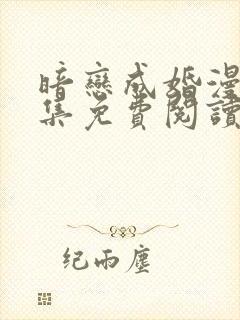 暗戀成婚漫
集免費閱讀
纪雨塵